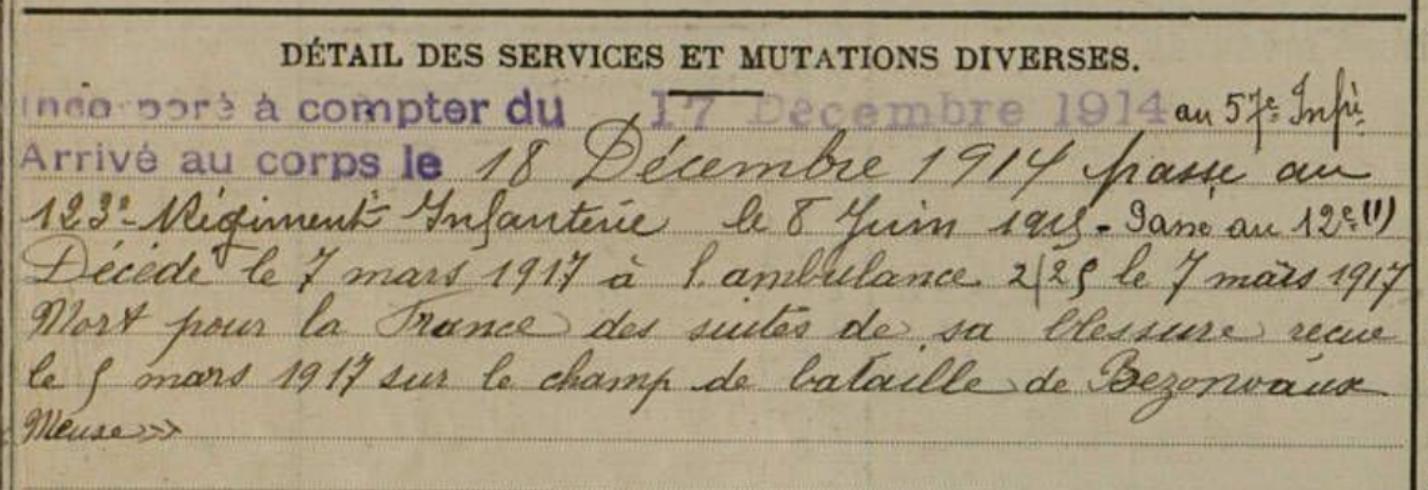 DÉTAIL DES SERVICES ET MUTATIONS DIVERSES.
Incorporé à compter du 17 Décembre 1914 au 57e Infie
Arrivé au corps le 18 Décembre 1914 passé au
123e Régiment Infanterie le 8 Juin 1915 - Passé au 12e (1)
Décédé le 7 mars 1917 à l'ambulance 2/25 le 7 mars 1917
Mort pour la France des suites de sa blessure reçue
le 5 mars 1917 sur le champ de bataille de Bezonvaux
Meuse »